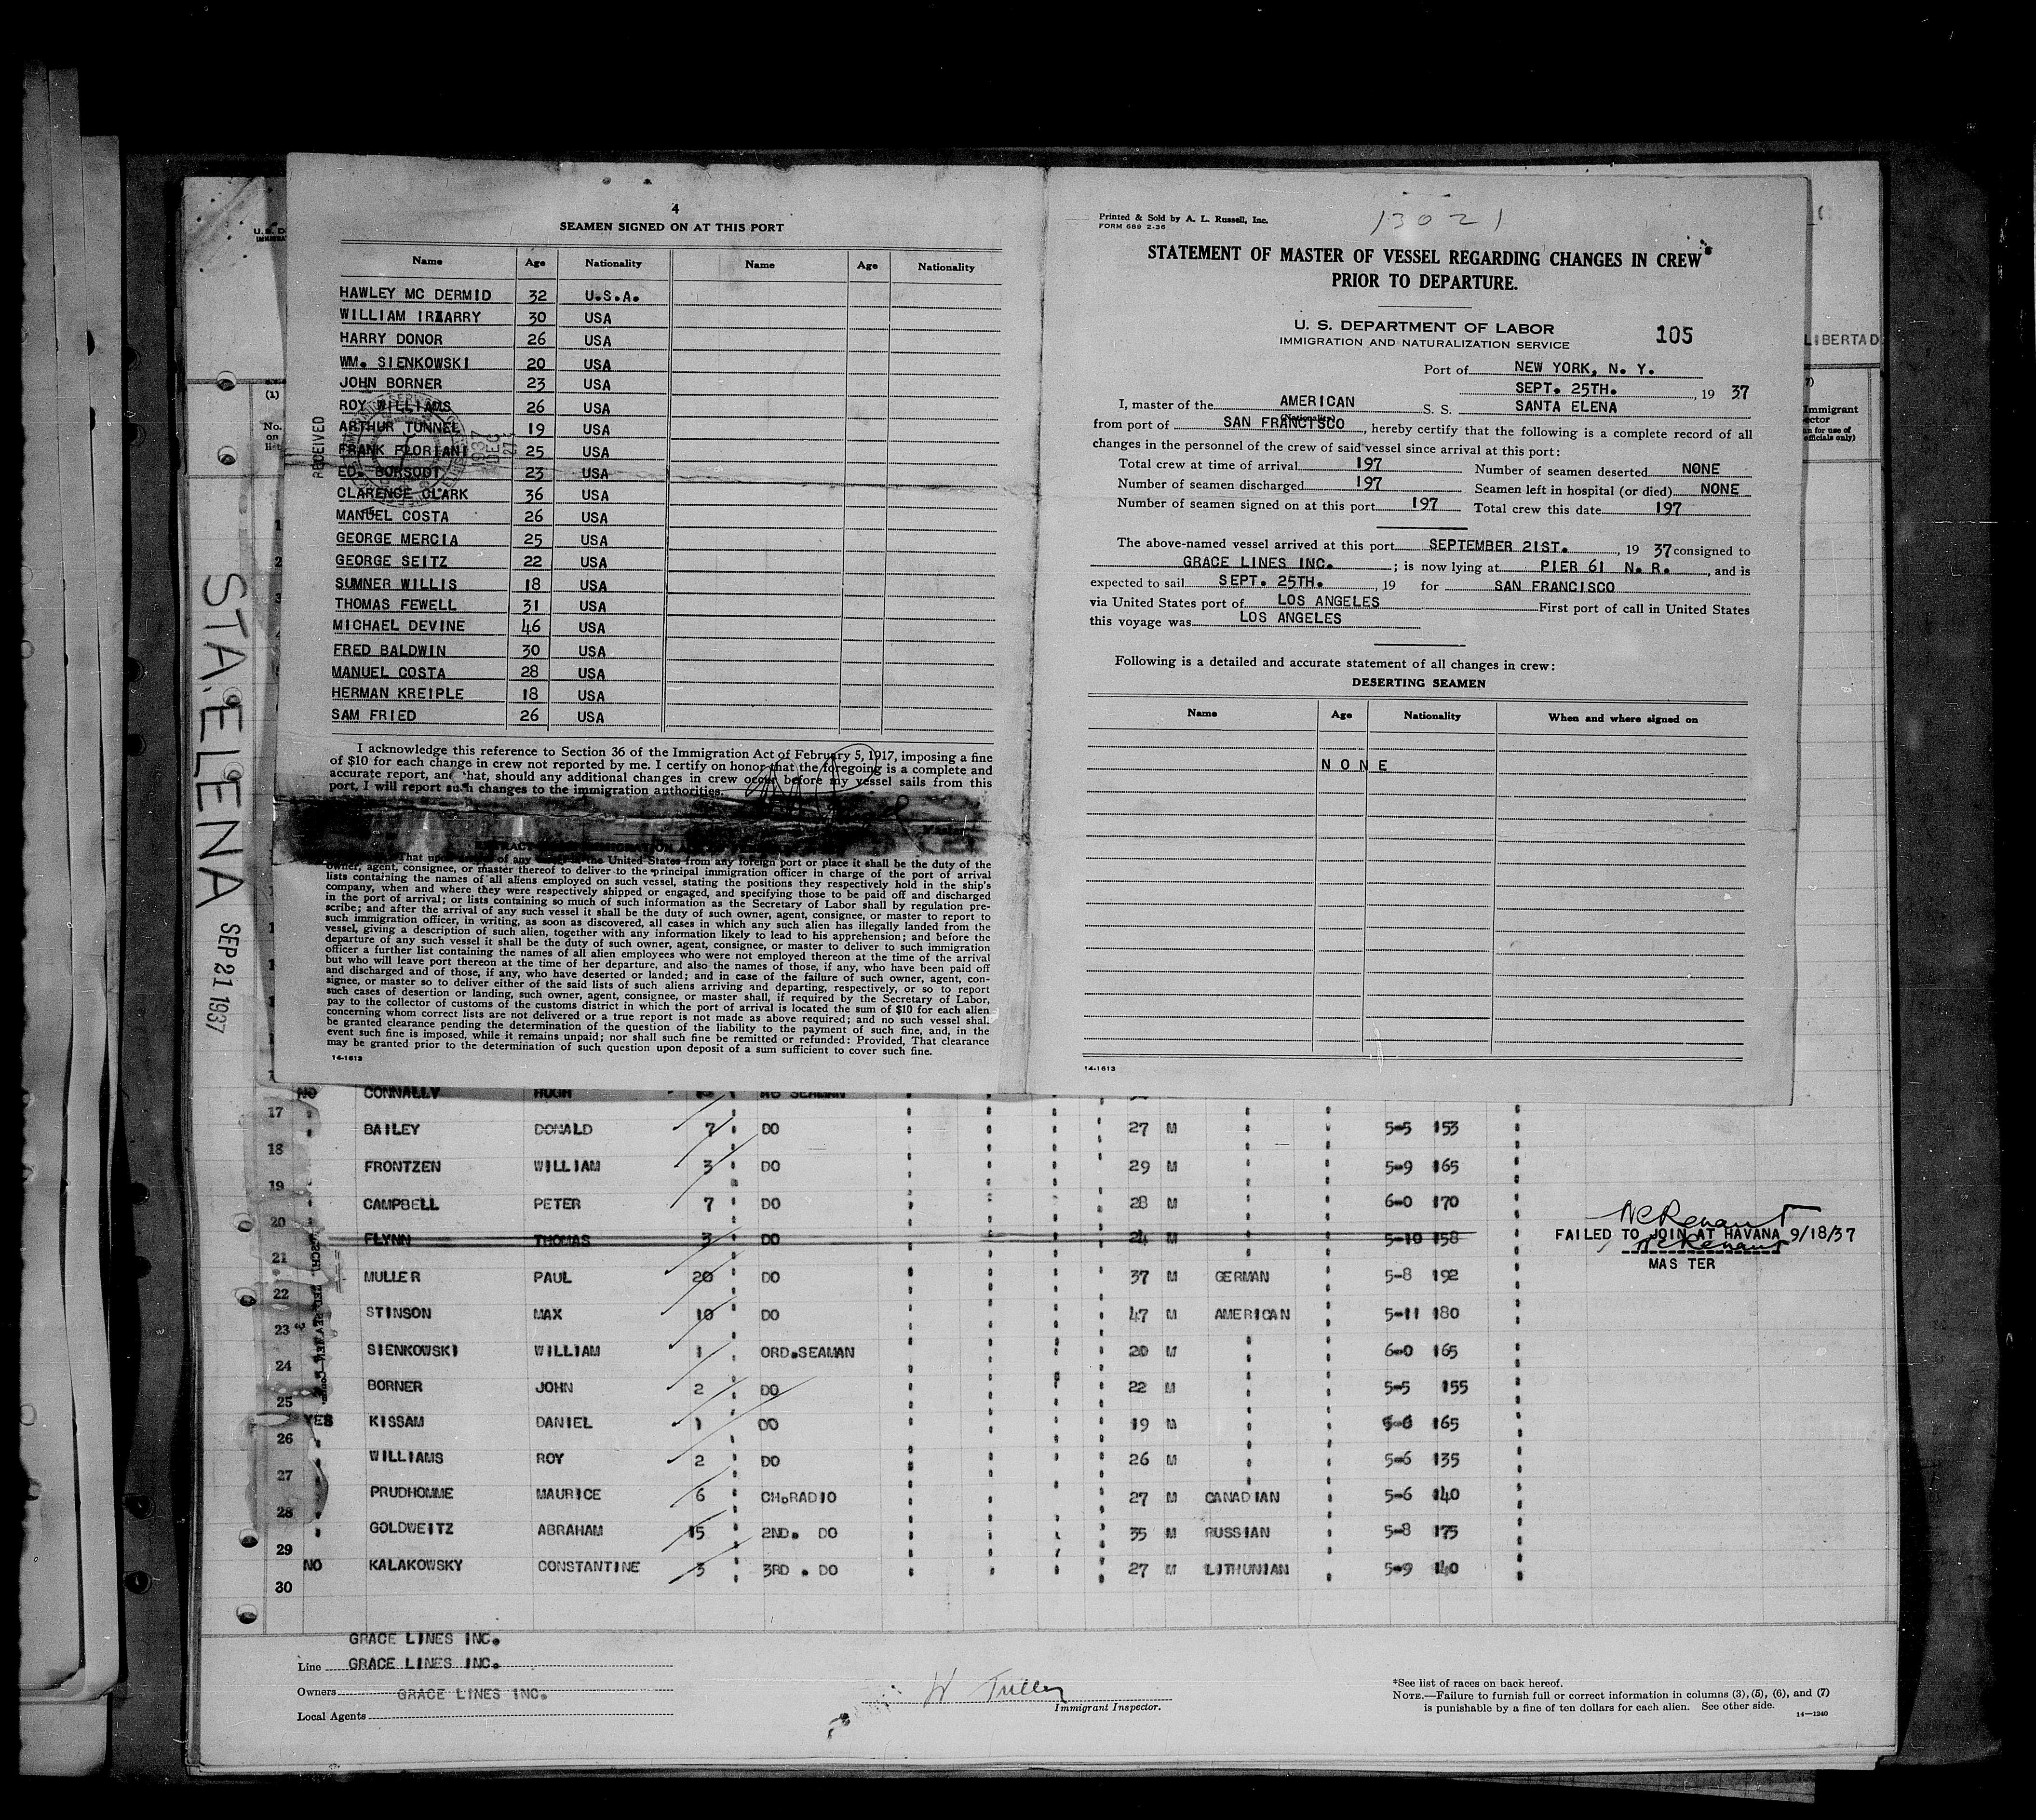 4
SEAMEN SIGNED ON AT THIS PORT
Name Age Nationality Name Age Nationality
HAWLEY MC DERMID 32 U.S.A.
WILLIAM IRZARRY 30 USA
HARRY DONOR 26 USA
WM. SIENKOWSKI 20 USA
JOHN BORNER 23 USA
ROY WILLIAMS 26 USA
ARTHUR TUNNEL 19 USA
FRANK FLORIANI 25 USA
ED. BORSODT 23 USA
CLARENCE CLARK 36 USA
MANUEL COSTA 26 USA
GEORGE MERCIA 25 USA
GEORGE SEITZ 22 USA
SUMNER WILLIS 18 USA
THOMAS FEWELL 31 USA
MICHAEL DEVINE 46 USA
FRED BALDWIN 30 USA
MANUEL COSTA 28 USA
HERMAN KREIPLE 18 USA
SAM FRIED 26 USA
RECEIVED
1937 DEC 27
I acknowledge this reference to Section 36 of the Immigration Act of February 5, 1917, imposing a fine
of $10 for each change in crew not reported by me. I certify on honor that the foregoing is a complete and
accurate report, and that, should any additional changes in crew occur before my vessel sails from this
port, I will report such changes to the immigration authorities.
That upon of any the United States from any foreign port or place it shall be the duty of the
owner, agent, consignee, or master thereof to deliver to the principal immigration officer in charge of the port of arrival
lists containing the names of all aliens employed on such vessel, stating the positions they respectively hold in the ship's
company, when and where they were respectively shipped or engaged, and specifying those to be paid off and discharged
in the port of arrival; or lists containing so much of such information as the Secretary of Labor shall by regulation pre-
scribe; and after the arrival of any such vessel it shall be the duty of such owner, agent, consignee, or master to report to
such immigration officer, in writing, as soon as discovered, all cases in which any such alien has illegally landed from the
vessel, giving a description of such alien, together with any information likely to lead to his apprehension; and before the
departure of any such vessel it shall be the duty of such owner, agent, consignee, or master to deliver to such immigration
officer a further list containing the names of all alien employees who were not employed thereon at the time of the arrival
but who will leave port thereon at the time of her departure, and also the names of those, if any, who have been paid off
and discharged and of those, if any, who have deserted or landed; and in case of the failure of such owner, agent, con-
signee, or master so to deliver either of the said lists of such aliens arriving and departing, respectively, or so to report
such cases of desertion or landing, such owner, agent, consignee, or master shall, if required by the Secretary of Labor,
pay to the collector of customs of the customs district in which the port of arrival is located the sum of $10 for each alien
concerning whom correct lists are not delivered or a true report is not made as above required; and no such vessel shal.
be granted clearance pending the determination of the question of the liability to the payment of such fine, and, in the
event such fine is imposed, while it remains unpaid; nor shall such fine be remitted or refunded: Provided, That clearance
may be granted prior to the determination of such question upon deposit of a sum sufficient to cover such fine.
14-1613
Printed & Sold by A. L. Russell, Inc.
FORM 689 2-36
13021
STATEMENT OF MASTER OF VESSEL REGARDING CHANGES IN CREW
PRIOR TO DEPARTURE.
U. S. DEPARTMENT OF LABOR
IMMIGRATION AND NATURALIZATION SERVICE
105
Port of NEW YORK, N. Y.
SEPT. 25TH. , 19 37
I, master of the AMERICAN S. S. SANTA ELENA
(Nationality)
from port of SAN FRANCISCO, hereby certify that the following is a complete record of all
changes in the personnel of the crew of said vessel since arrival at this port:
Total crew at time of arrival 197 Number of seamen deserted NONE
Number of seamen discharged 197 Seamen left in hospital (or died) NONE
Number of seamen signed on at this port 197 Total crew this date 197
The above-named vessel arrived at this port SEPTEMBER 21ST. , 19 37 consigned to
GRACE LINES INC. ; is now lying at PIER 61 N. R. , and is
expected to sail SEPT. 25TH. , 19 for SAN FRANCISCO
via United States port of LOS ANGELES First port of call in United States
this voyage was LOS ANGELES
Following is a detailed and accurate statement of all changes in crew:
DESERTING SEAMEN
Name Age Nationality When and where signed on
NONE
14-1613
LIBERTAD
Immigrant
(1)
No.
on
STA. ELENA SEP 21 1937
NO CONNALLY HUGH
17 BAILEY DONALD 7 DO 27 M 5-5 153
18 FRONTZEN WILLIAM 3 DO 29 M 5-9 165
19 CAMPBELL PETER 7 DO 28 M 6-0 170
20 FLYNN THOMAS 3 DO 24 M 5-10 158
FAILED TO JOIN AT HAVANA 9/18/37
MASTER
21 MULLER PAUL 20 DO 37 M GERMAN 5-8 192
22 STINSON MAX 10 DO 47 M AMERICAN 5-11 180
23 SIENKOWSKI WILLIAM 1 ORD.SEAMAN 20 M 6-0 165
24 BORNER JOHN 2 DO 22 M 5-5 155
25 YES KISSAM DANIEL 1 DO 19 M 165
26 WILLIAMS ROY 2 DO 26 M 5-6 135
27 PRUDHOMME MAURICE 6 CH.RADIO 27 M CANADIAN 5-6 140
28 GOLDWEITZ ABRAHAM 15 2ND. DO 35 M RUSSIAN 5-8 175
29 NO KALAKOWSKY CONSTANTINE 3 3RD . DO 27 M LITHUNIAN 5-9 140
30
GRACE LINES INC.
Line GRACE LINES INC.
Owners GRACE LINES INC.
Local Agents
Immigrant Inspector.
*See list of races on back hereof.
NOTE.—Failure to furnish full or correct information in columns (3), (5), (6), and (7)
is punishable by a fine of ten dollars for each alien. See other side.
14—1240